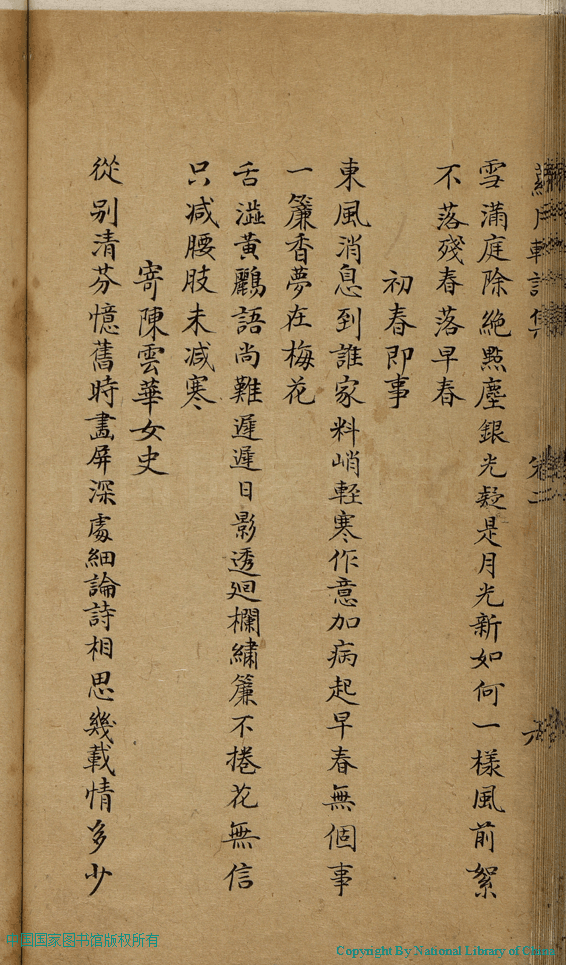 雪滿庭除絶㸃塵銀光疑是月光新如何一樣風前絮
不落殘春落早春
初春即事
東風消息到誰家料峭軽寒作意加病起早春無個事
一簾香夢在梅花
舌澁黃鸝語尚難遲遲日影透廻欄繡簾不捲花無信
只减腰肢未减寒
寄陳雲華女史
從别清芬憶舊時畵屏深處細論詩相思幾載情多少
中国国家图书馆版权所有
Copyright By National Library of China